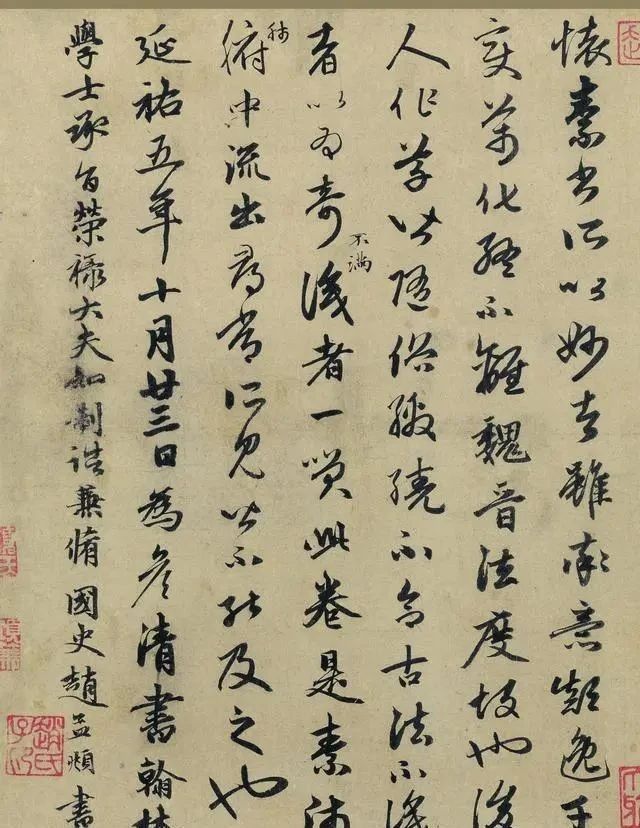 懷素書所以妙者雖率意顛逸千
變萬化終不離魏晉法度故也後
人作草皆隨俗繳繞不合古法不識
者以為奇不滿識者一笑此卷是素師
肺腑中流出尋常所見皆不能及之也
延祐五年十月廿三日為彥清書翰林
學士承旨榮祿大夫知制誥兼脩國史趙孟頫書
趙氏子昂